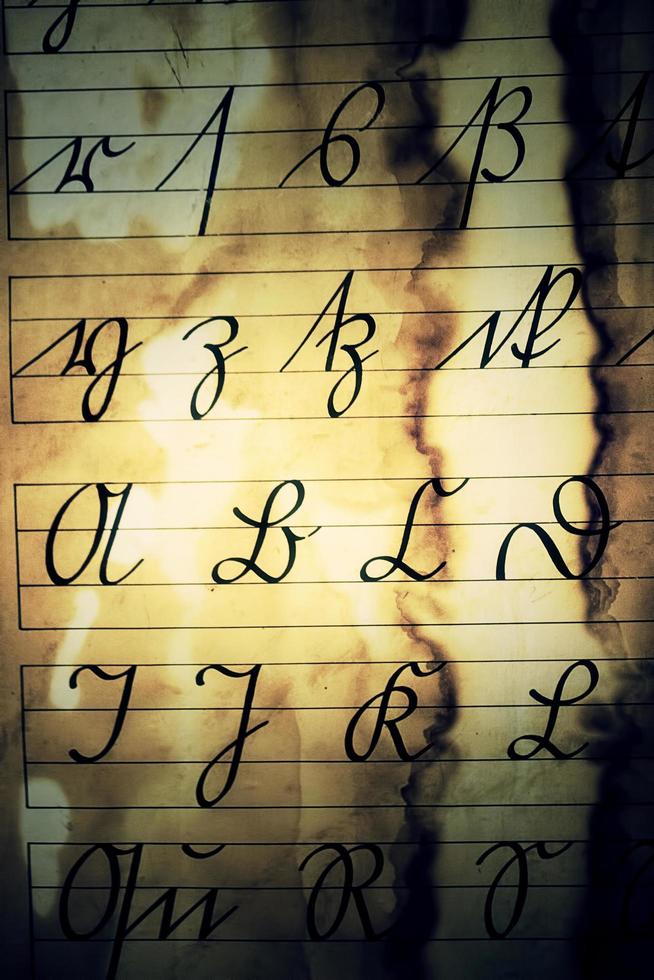 r ſ s ß t
y z tz ck
A B C D
I J K L
Qu R S